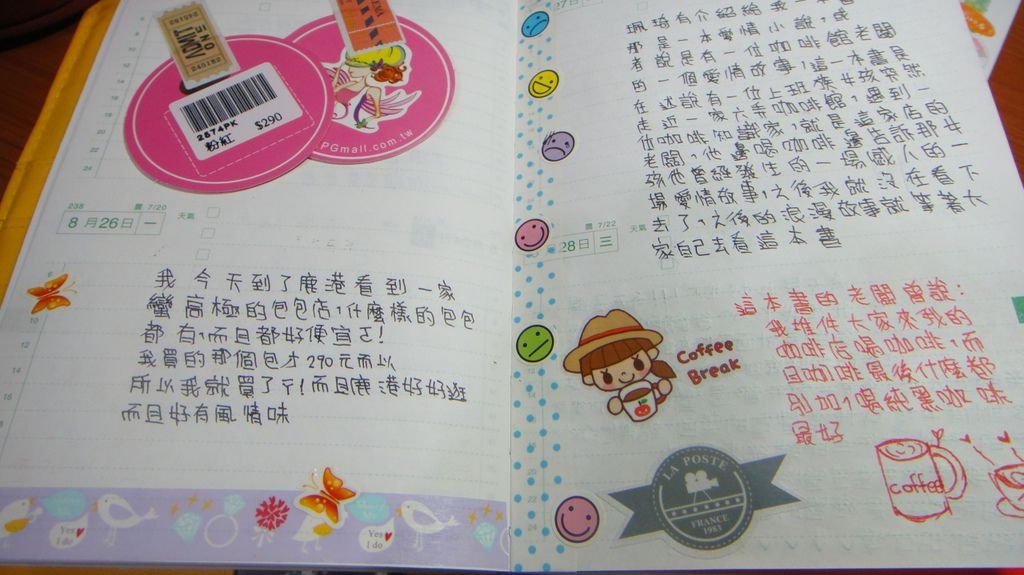 ADMIT
ONE
240182
2874PK
粉紅
$290
PGmall.com.tw
238
農 7/20
8月26日 一
天氣
我今天到了鹿港看到一家
蠻高極的包包店,什麼樣的包包
都有,而且都好便宜ㄛ!
我買的那個包才290元而以
所以我就買了ㄚ!而且鹿港好好逛
而且好有風情味
Yes
I do
Yes
I do
珮琦有介紹給我一本書
那是一本愛情小說,或
者說是有一位咖啡館老闆
的一個愛情故事,這一本書是
在述說有一位上班族女孩突然
走近一家六弄咖啡館,遇到一
位咖啡知識家,就是這家店的
老闆,他邊喝咖啡邊告訴那女
孩他曾經發生的一場感人的一
場愛情故事,之後我就沒在看下
去了,之後的浪漫故事就等著大
家自己去看這本書
農 7/22
28日 三
天氣
這本書的老闆曾說:
我堆件大家來我的
咖啡店喝咖啡,而
且咖啡最後什麼都
別加,喝純黑咖啡
最好
Coffee
Break
coffee
LA POSTE
FRANCE
1983